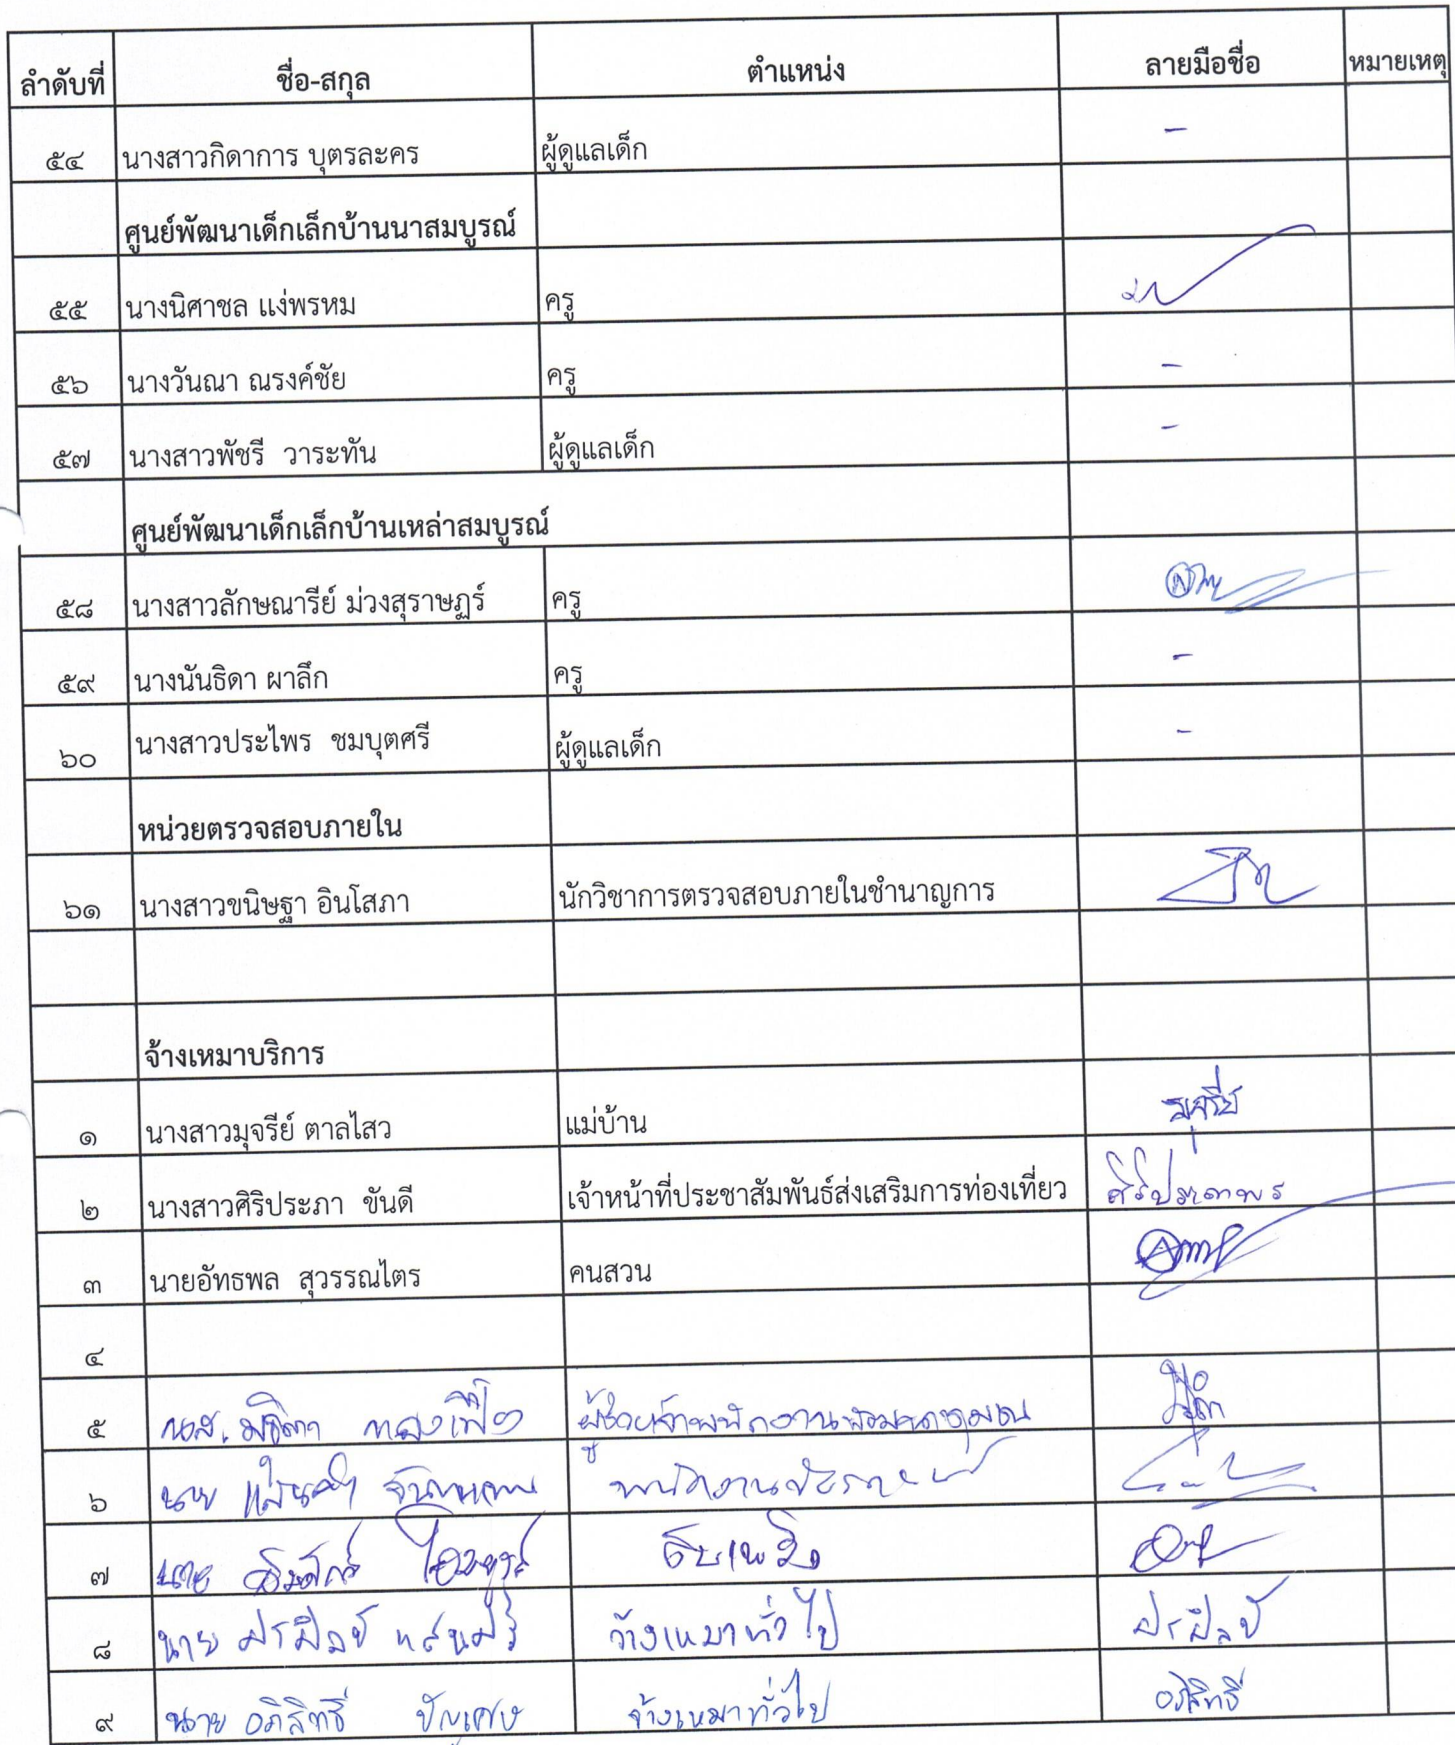 ลำดับที่ ชื่อ-สกุล ตำแหน่ง ลายมือชื่อ หมายเหตุ
๕๔ นางสาวกิดาการ บุตรละคร ผู้ดูแลเด็ก -
ศูนย์พัฒนาเด็กเล็กบ้านนาสมบูรณ์
๕๕ นางนิศาชล แง่พรหม ครู
๕๖ นางวันณา ณรงค์ชัย ครู -
๕๗ นางสาวพัชรี วาระทัน ผู้ดูแลเด็ก -
ศูนย์พัฒนาเด็กเล็กบ้านเหล่าสมบูรณ์
๕๘ นางสาวลักษณารีย์ ม่วงสุราษฎร์ ครู
๕๙ นางนันธิดา ผาลึก ครู -
๖๐ นางสาวประไพร ชมบุตศรี ผู้ดูแลเด็ก -
หน่วยตรวจสอบภายใน
๖๑ นางสาวขนิษฐา อินโสภา นักวิชาการตรวจสอบภายในชำนาญการ
จ้างเหมาบริการ
๑ นางสาวมุจรีย์ ตาลไสว แม่บ้าน มุจรีย์
๒ นางสาวศิริประภา ขันดี เจ้าหน้าที่ประชาสัมพันธ์ส่งเสริมการท่องเที่ยว
๓ นายอัทธพล สุวรรณไตร คนสวน
๔
๕ นส. ผู้ช่วยเจ้าพนักงานพัฒนาชุมชน
๖ นาย พนักงานขับรถ
๗ นาย ดับเพลิง
๘ นาย จ้างเหมาทั่วไป
๙ นาย อภิสิทธิ์ จ้างเหมาทั่วไป อภิสิทธิ์